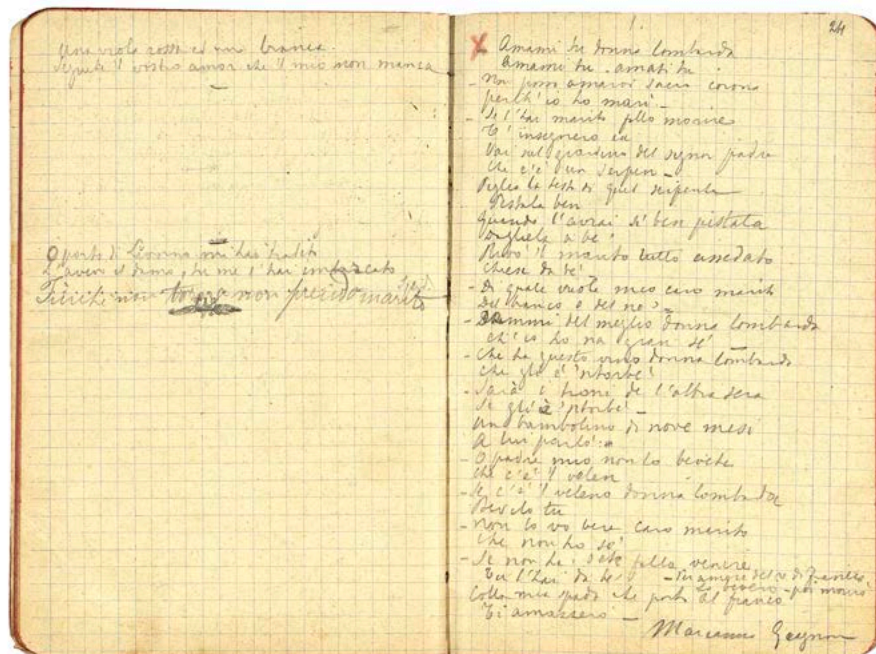 una viola rossa ed una bianca.
Seguite il vostro amor che il mio non manca
O porto di Livorno mi hai tradito
L'avevo il damo, tu me l'hai imbarcato
Finchè non torna non prendo marito
24
X Amami tu donna lombarda
Amami tu . amati tu
- Non posso amarvi sacra corona
perch' io ho marì -
- Se l'hai marito fallo morire
T' insegnerò io
Vai sul giardino del signor padre
Che c'è un serpen -
Piglia la testa di quel serpente
Pistala ben
Quando l'avrai sì ben pistata
Dagliela a be'
Rivò il marito tutto assedato
Chiese da be'
- Di quale vuole mio caro marito
Del bianco o del ne' ?
- Dammi del meglio donna lombarda
ch' io ho na gran sé -
- Che ha questo vino donna lombarda
che gli è 'ntorbé'
- Sarà i troni de l'altra sera
Se gli è 'ntorbé' -
Un bambolino di nove mesi
A lui parlò :
- O padre mio non lo bevete
che c'è 'l velen
- Se c'è 'l veleno donna lombarda
Bevilo tu
- Non lo vo bere caro marito
Che non ho se'
- Se non hai sete falla venire
Tu l'hai da be' - Per amore del re di Francia
Lo beverò - poi morirò
Colla mia spada che porto al fianco
Ti amazzerò -
Marianna